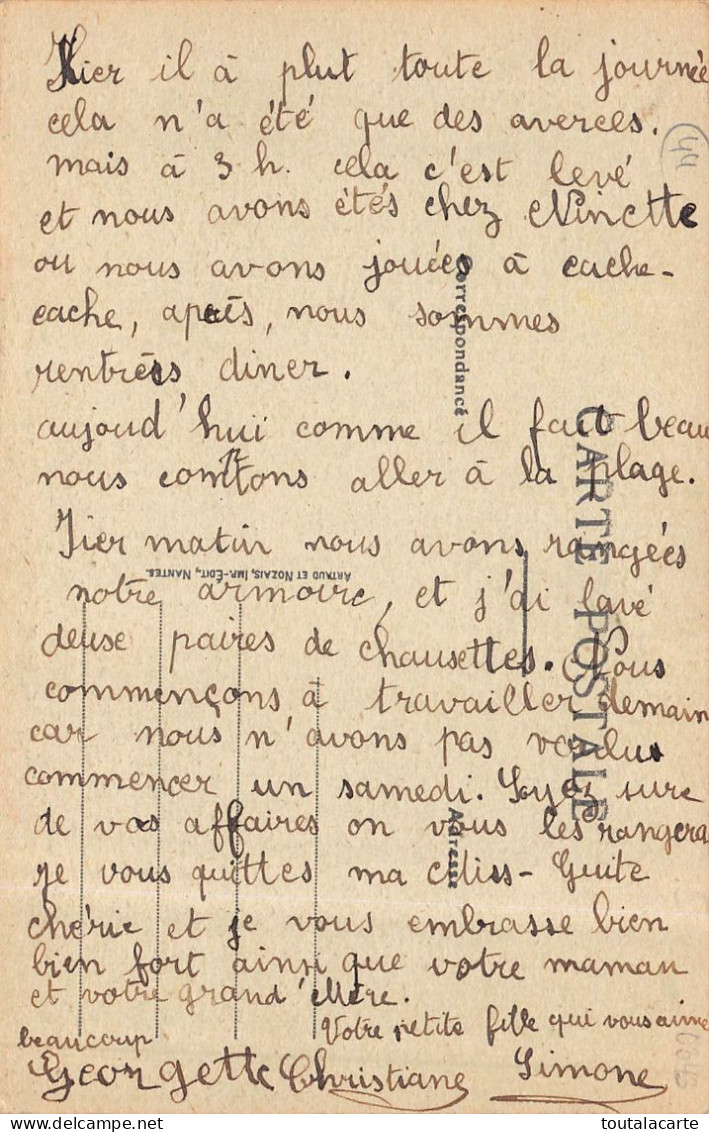 Hier il à plut toute la journée
cela n'a été que des averces.
mais à 3 h. cela c'est levé
et nous avons étés chez Ninette
ou nous avons jouées à cache-
cache, après, nous sommes
rentrées diner.
aujourd'hui comme il fait beau
nous comptons aller à la plage.
Hier matin nous avons rangées
notre armoire, et j'ai lavé
deuse paires de chausettes. Nous
commençons à travailler demain
car nous n'avons pas voulus
commencer un samedi. Soyez sure
de vos affaires on vous les rangera
je vous quittes ma Miss-Guite
chérie et je vous embrasse bien
bien fort ainsi que votre maman
et votre grand'Mère.
Votre petite fille qui vous aime
beaucoup
Georgette Christiane Simone
44
Correspondance
CARTE POSTALE
Adresse
ARTAUD ET NOZAIS, IMP.-ÉDIT., NANTES.
toutalacarte